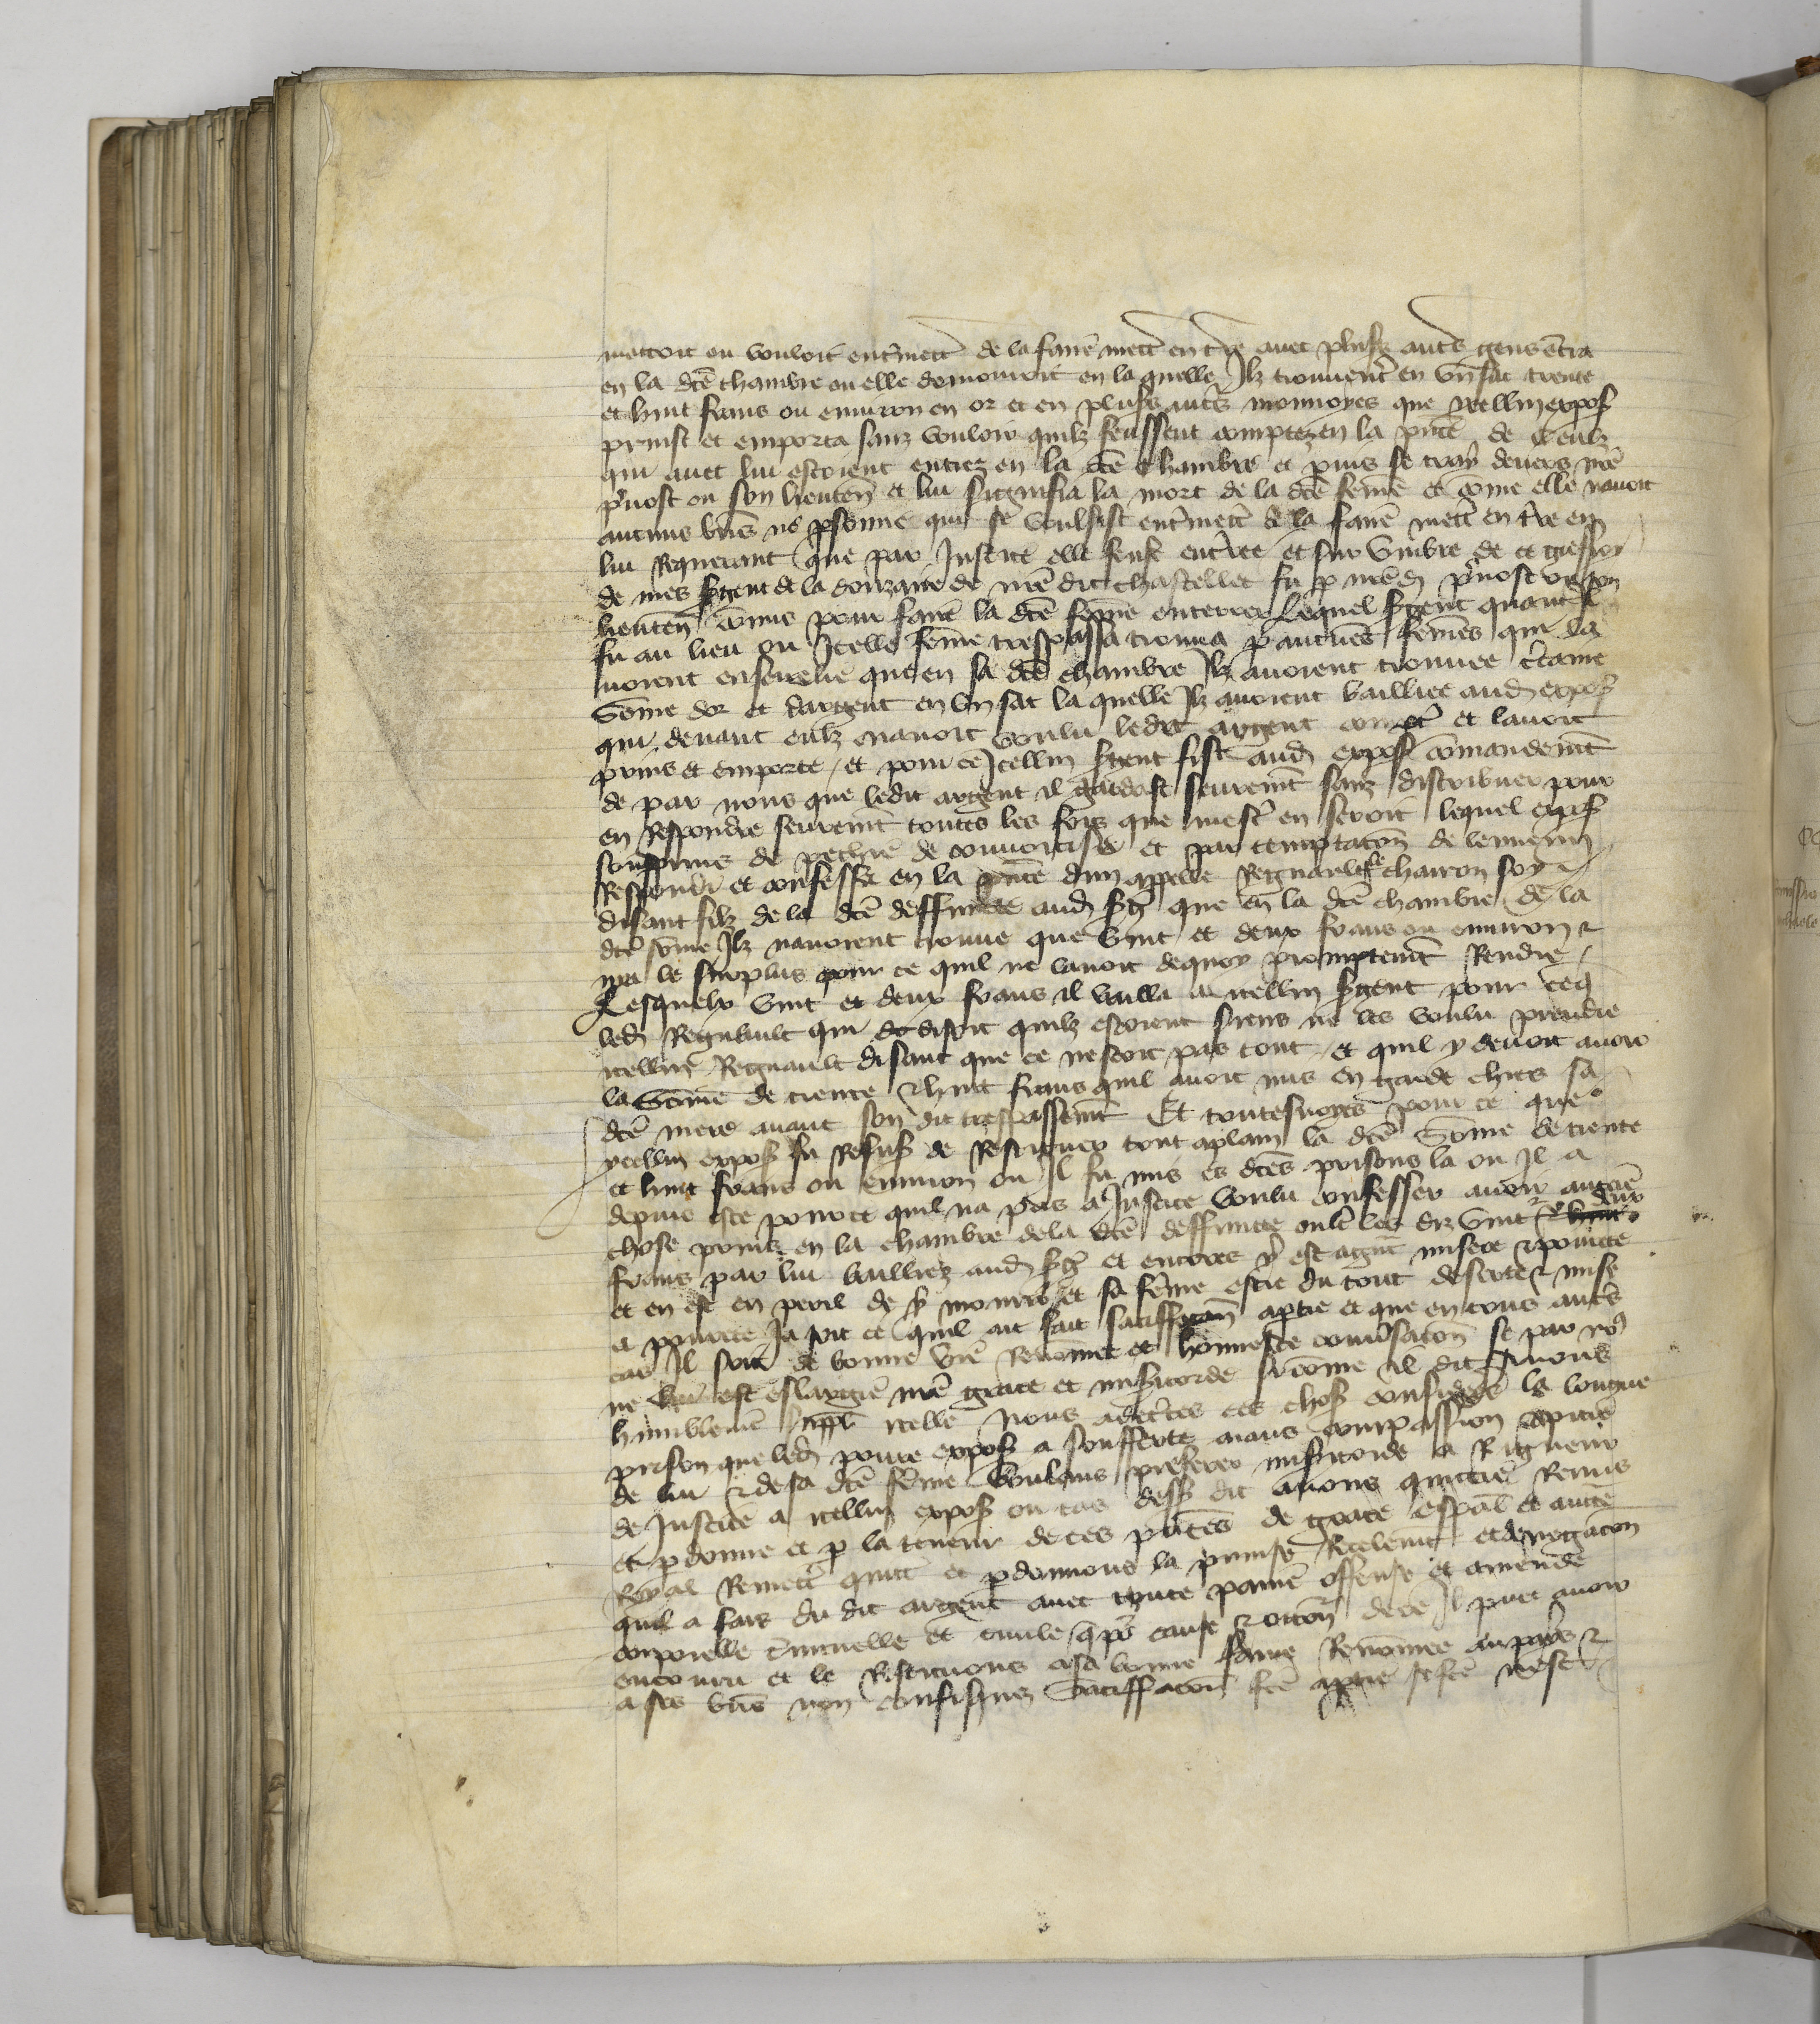 mettoit ou vouloit ent'mett' de la faire mett' en t're avec plus's aut's gens entra
en la dce chambre ou elle demouroit en la quelle Ilz trouverent en un sac trente
et huit frans ou environ en or et en plus's aut's monnoyes que icellui expos
prinst et emporta sanz vouloir quilz feussent comptez en la pnce de ceulx
qui avec lui estoient entrez en la dce chambre et puis se tray devers nre
p'vost ou son lieuten et lui signifia la mort de la dce feme et come elle navoit
aucuns biens ne psonne qui se voulsist ent'mett' de la faire mett' en t're en
lui Requerant que par Justice elle feust ent'ree et sur umbre de ce
de nres sgent de la douzaine de nre dit chastellet fu p nred p'vost ou son
lieuten comis pour faire la dce feme enterrer Lequel sgent quant il
fu au lieu ou Icelle feme trespassa trouva p aucunes femes qui la
voient ensevelie que en sa dce chambre Ilz avoient trouvee c'taine
Some dor et dargent en un sac la quelle Ilz avoient bailliee aud expos
qui devant eulz navoit voulu ledit argent compt' et lavoit
prins et emporte / et pour ce Icellui sgent fist aud expos comandemt
de par nous que ledit argent il gardast seuremt sanz distribuer pour
en Respondre seuremt toutes les foiz que mest' en seroit lequel expos
seurprins de pechie de convoitise et par temptacon de lennemi
Respondi et confessa en la pnce dun appelle Regnault le charron soy
disant filz de la dce deffuncte aud sg' que en la dce chambre de la
dce some Ilz navoient trouve que vint et deux frans ou environ &
nya le surplus pour ce quil ne lavoit dequoy promptemt Rendre /
Lesquelx vint et deux frans il bailla a icellui sgent pour ceq
led Regnault qui disoit quilz estoient siens ne les voulu prendre
icellui Regnault disant que ce nestoit pas tout / et quil y devoit avoir
la Some de trente & huit frans quil avoit mis en garde chies sa
dce mere avant son dit trespassemt Et toutesvoyes pour ce que
ycellui expos fu Refus de Restituer tout aplain la dce Some de trente
et huit frans ou environ ou Il fu mis es dces prisons la ou il a
depuis este pour ce quil na pas a Justice voulu confesser avoir aucune
chose prins en la chambre dela dce deffuncte oult' les diz vint & deux
frans par lui bailliez aud sg' et encores y est a gnt misere & povrete
et en est en peril de y mourir et sa feme estre du tout deserte & mise
a povrete Ja soit ce quil ait fait satiffacon a ptie et que en tous aut's
cas Il soit de bonne vie Renomee et honneste conv'sacon se par n9
ne lui est eslargie nre grace et misericorde si come il dit
humblement suppl icelle Nous adcertes ces choses considerees la longue
prison que led povre expos a soufferte aians compassion & pitie
de lui & de sa dce feme voulans preferer misericorde a Rigueur
de Justice a icellui expos ou cas dess dit avons quittie Remis
et pdonne et p la teneur de ces pntes de grace espal et auct'e
Royal Remett' quitt' et pdonnons la prinse Recelemt et denegacon
quil a fais du dit argent avec toute paine offense et amende
corporelle c'iminelle et civile q por cause & occon de ce Il puet avoir
encouru et le Restituons a sa bonne fame Renomee au pays &
a ses biens non confisquez Satiffacon fce a ptie se fce nest